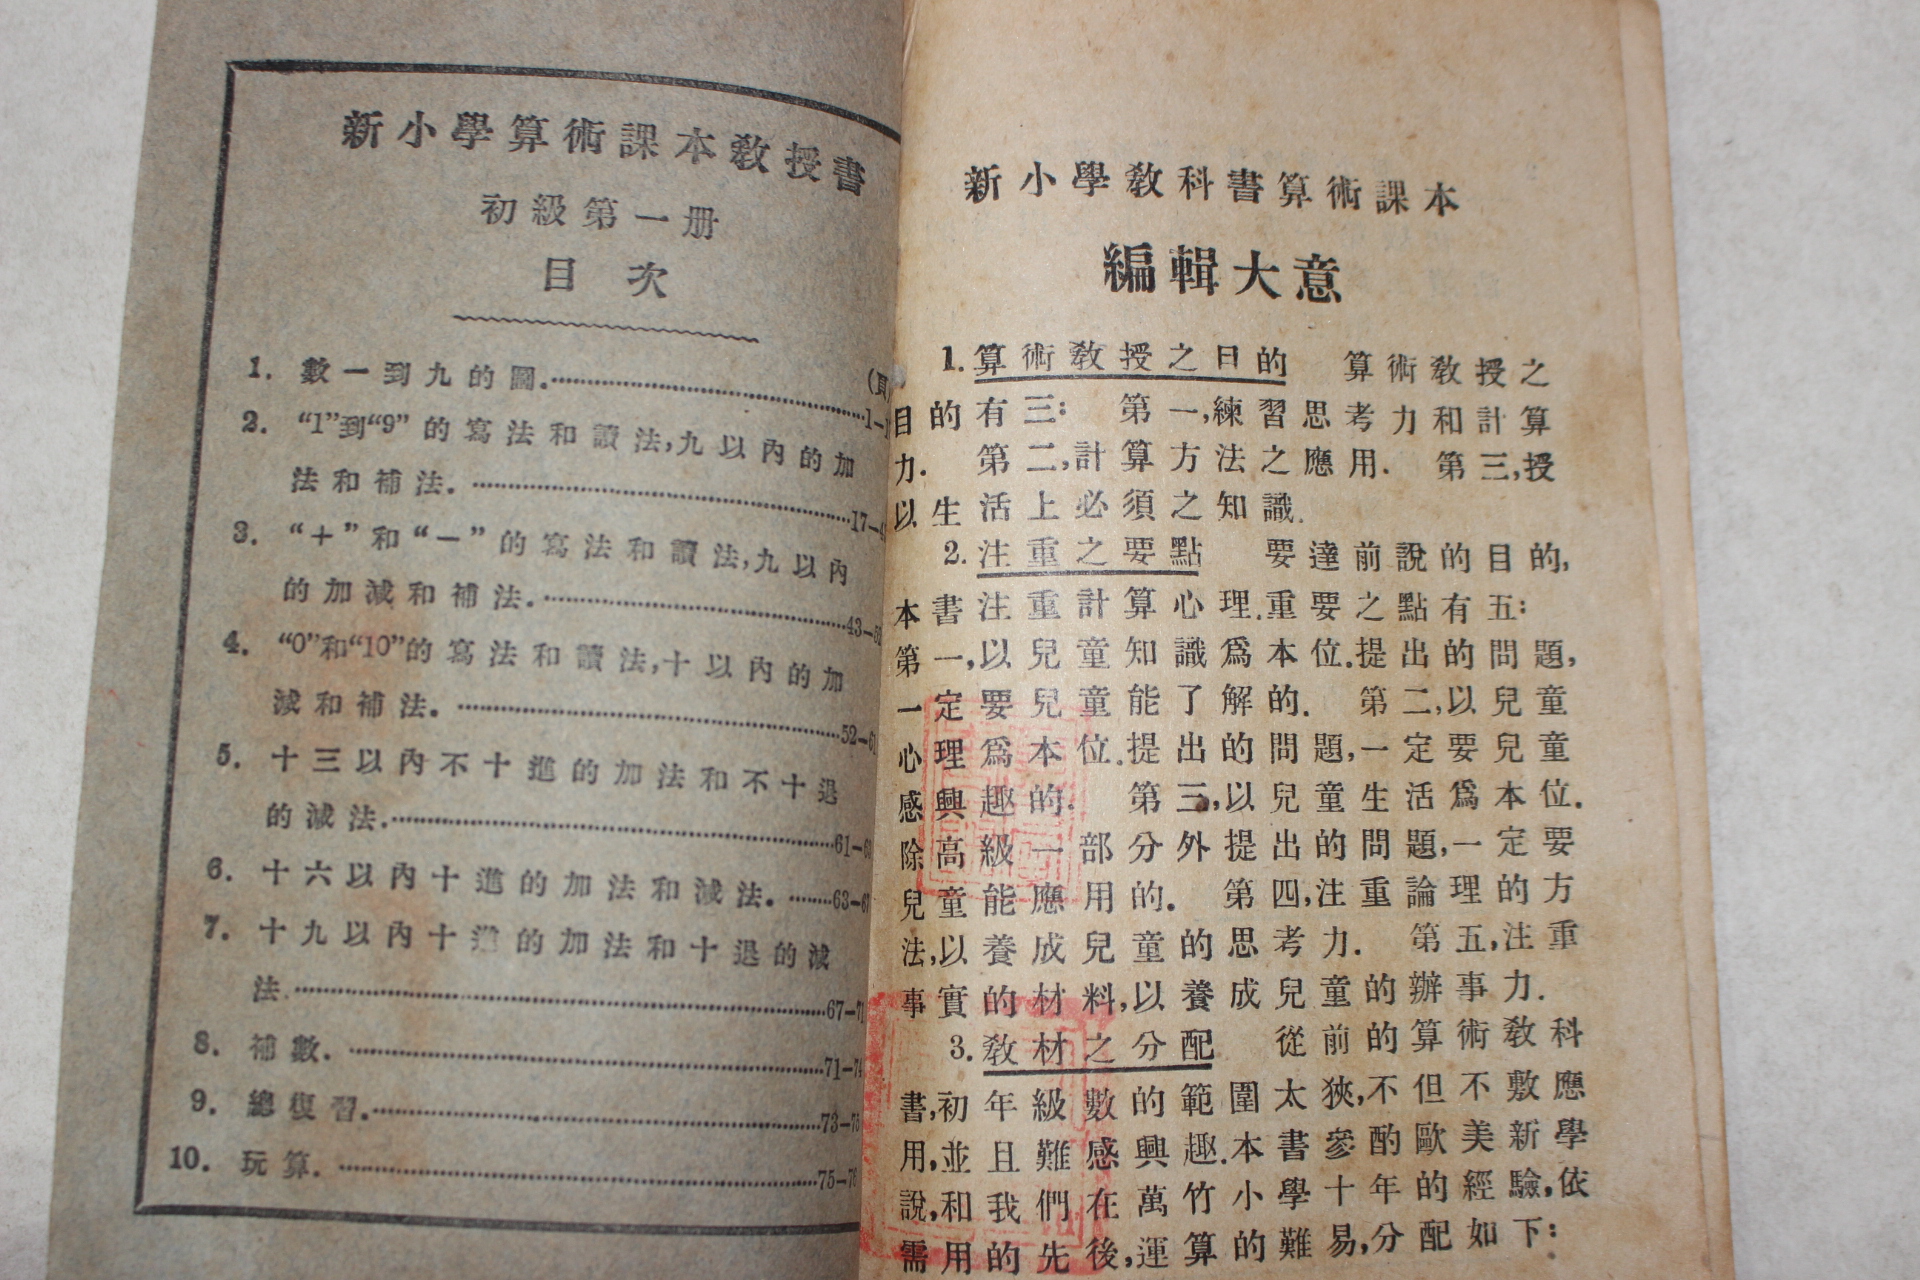 新小學算術課本教授書
初級第一册
目次
(頁)
1. 數一到九的圖.……1—
2. “1”到“9”的寫法和讀法,九以內的加
法和補法.……17—
3. “＋”和“－”的寫法和讀法,九以內
的加減和補法.……43—
4. “0”和“10”的寫法和讀法,十以內的加
減和補法.……52—
5. 十三以內不十進的加法和不十退
的減法.……61—
6. 十六以內十進的加法和減法.……63—67
7. 十九以內十進的加法和十退的減
法.……67—71
8. 補數.……71—74
9. 總復習.……73—75
10. 玩算.……75—76
新小學教科書算術課本
編輯大意
1. 算術教授之目的　算術教授之
目的有三:　第一,練習思考力和計算
力.　第二,計算方法之應用.　第三,授
以生活上必須之知識.
2. 注重之要點　要達前說的目的,
本書注重計算心理.重要之點有五:
第一,以兒童知識爲本位.提出的問題,
一定要兒童能了解的.　第二,以兒童
心理爲本位.提出的問題,一定要兒童
感興趣的.　第三,以兒童生活爲本位.
除高級一部分外提出的問題,一定要
兒童能應用的.　第四,注重論理的方
法,以養成兒童的思考力.　第五,注重
事實的材料,以養成兒童的辦事力.
3. 教材之分配　從前的算術教科
書,初年級數的範圍太狹,不但不敷應
用,並且難感興趣.本書參酌歐美新學
說,和我們在萬竹小學十年的經驗,依
需用的先後,運算的難易,分配如下: